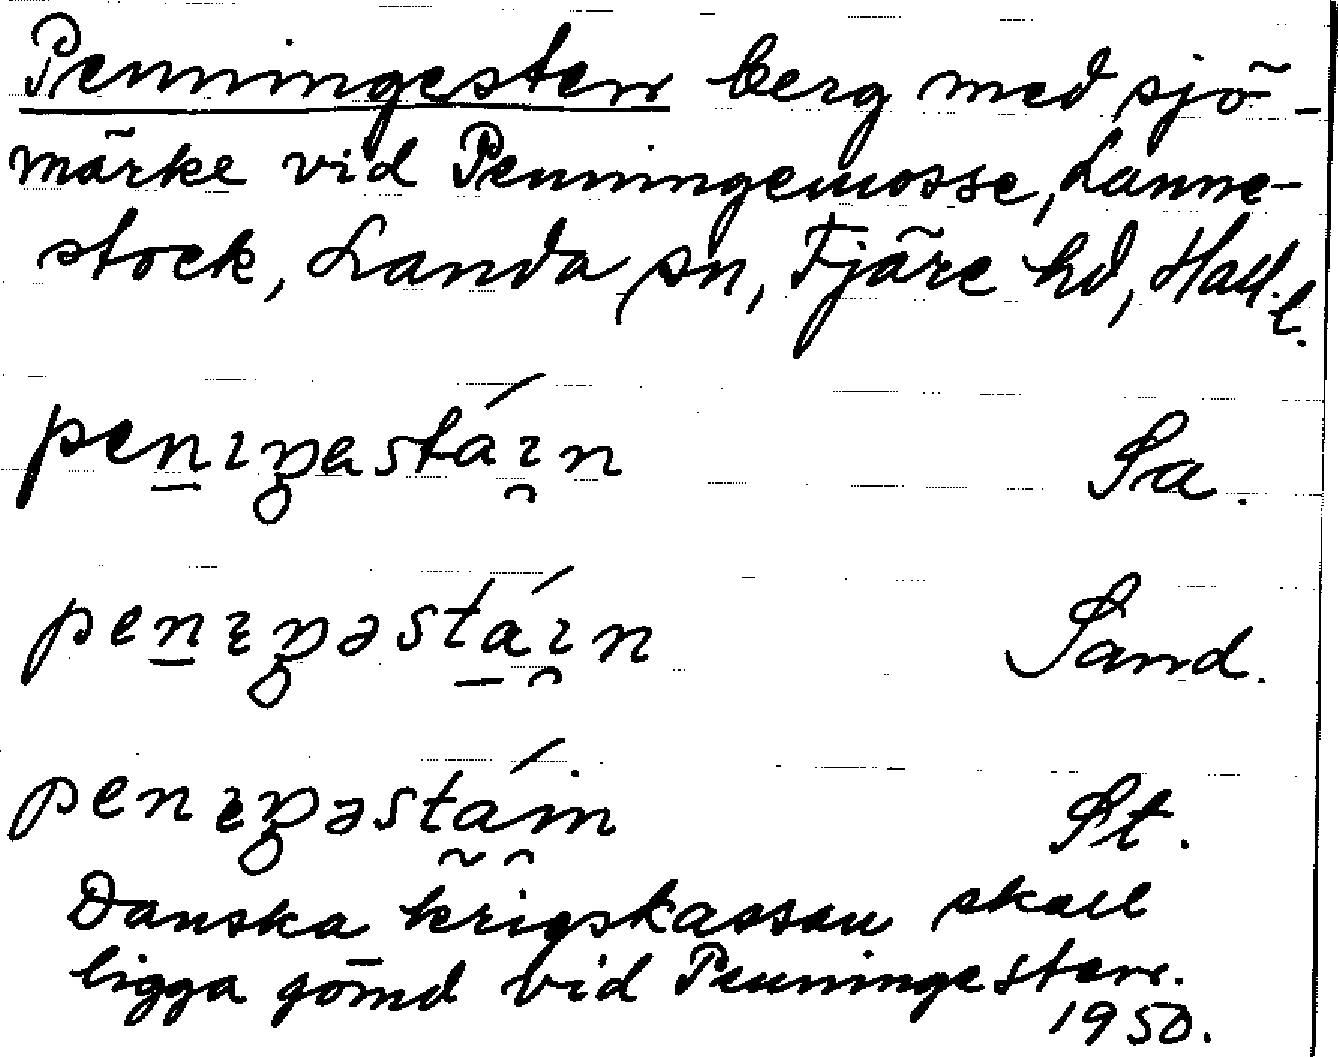 Penningesten berg med sjö-
märke vid Penningemosse, Lanne-
stock, Landa sn, Fjäre hd, Hall.
Sa.
Sand.
St.
Danska krigskassan skall
ligga gömd vid Penningesten.
1950.